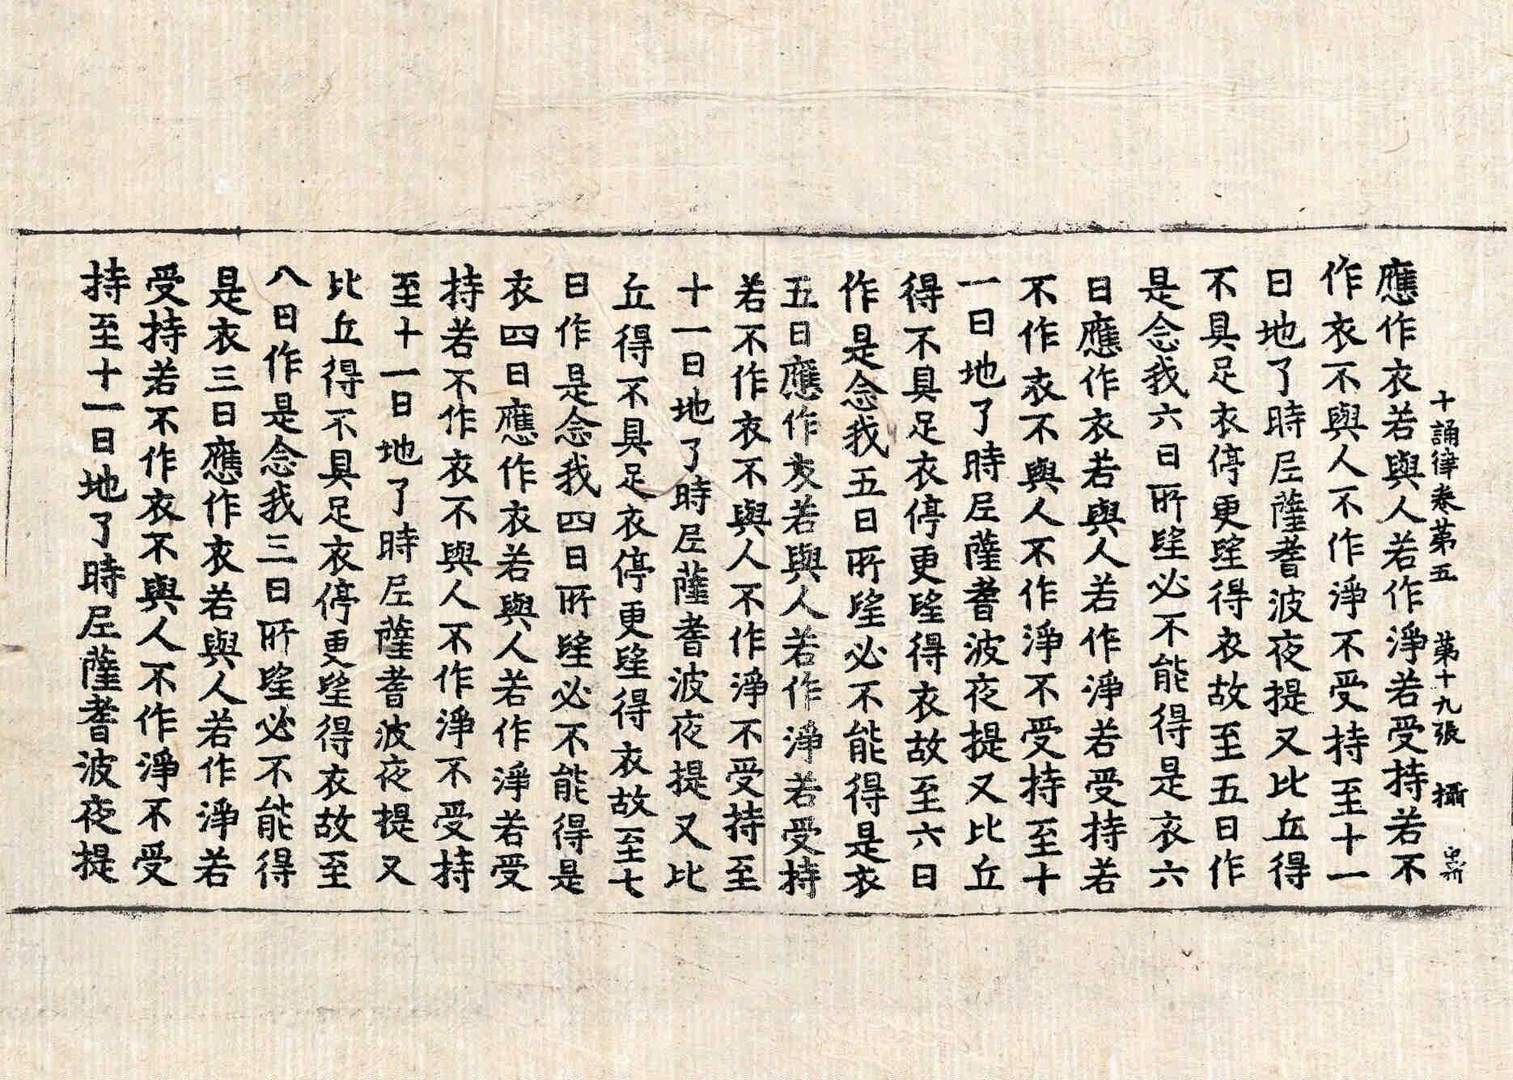 十誦律卷第五 第十九張 攝
應作衣若與人若作淨若受持若不
作衣不與人不作淨不受持至十一
日地了時尼薩耆波夜提又比丘得
不具足衣停更望得衣故至五日作
是念我六日所望必不能得是衣六
日應作衣若與人若作淨若受持若
不作衣不與人不作淨不受持至十
一日地了時尼薩耆波夜提又比丘
得不具足衣停更望得衣故至六日
作是念我五日所望必不能得是衣
五日應作衣若與人若作淨若受持
若不作衣不與人不作淨不受持至
十一日地了時尼薩耆波夜提又比
丘得不具足衣停更望得衣故至七
日作是念我四日所望必不能得是
衣四日應作衣若與人若作淨若受
持若不作衣不與人不作淨不受持
至十一日地了時尼薩耆波夜提又
比丘得不具足衣停更望得衣故至
八日作是念我三日所望必不能得
是衣三日應作衣若與人若作淨若
受持若不作衣不與人不作淨不受
持至十一日地了時尼薩耆波夜提